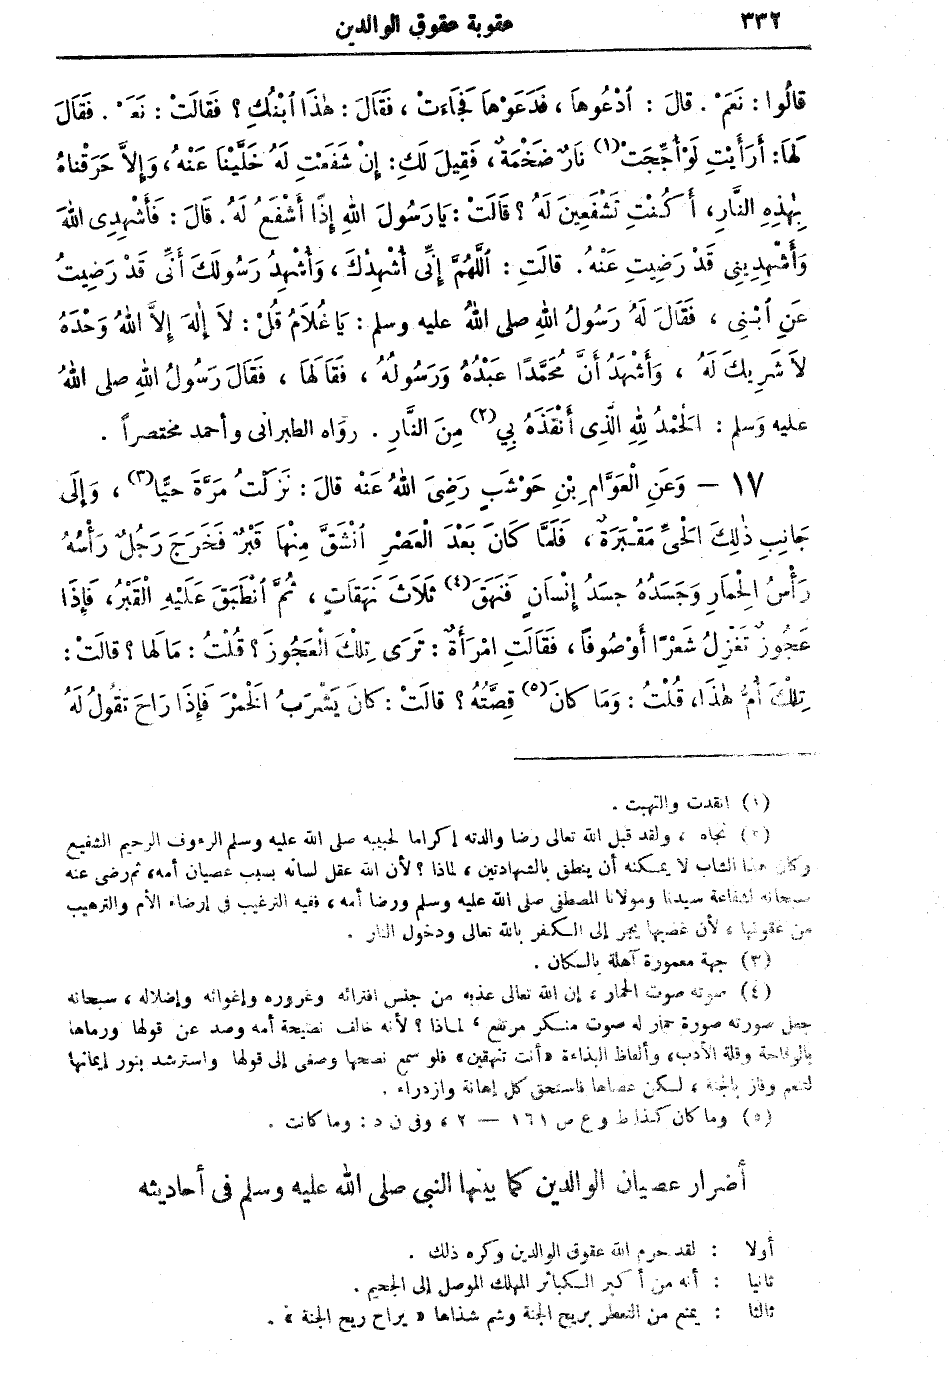 ٣٣٢ عقوبة عقوق الوالدين
قالُوا : نَعَمْ . قالَ : اُدْعُوها ، فَدَعَوْها فَجَاءَتْ ، فَقَالَ : هٰذَا اُبْنُكِ ؟ فَقَالَتْ : نَعَمْ . فَقَالَ
لَهَا : أَرَأَيْتِ لَوْ أُجِّجَتْ (١) نَارٌ ضَخْمَةٌ ، فَقِيلَ لَكِ : إِنْ شَفَعْتِ لَهُ خَلَّيْنَا عَنْهُ ، وَإِلاَّ حَرَقْناهُ
بِهٰذِهِ النَّارِ ، أَكُنْتِ تَشْفَعِينَ لَهُ ؟ قالَتْ : يَارَسُولَ اللهِ إِذًا أَشْفَعُ لَهُ . قالَ : فَأَشْهِدِى اللهَ
وَأَشْهِدِينِى قَدْ رَضِيتِ عَنْهُ . قالَتِ : اَللَّهُمَّ إِنِّى أُشْهِدُكَ ، وَأُشْهِدُ رَسُولَكَ أَنِّى قَدْ رَضِيتُ
عَنِ ابْنِى ، فَقَالَ لَهُ رَسُولُ اللهِ صلى اللهُ عليه وسلم : يَا غُلاَمُ قُلْ : لاَ إِلٰهَ إِلاَّ اللهُ وَحْدَهُ
لاَ شَرِيكَ لَهُ ، وَأَشْهَدُ أَنَّ مُحَمَّدًا عَبْدُهُ وَرَسُولُهُ ، فَقَالَهَا ، فَقَالَ رَسُولُ اللهِ صلى اللهُ
عليه وَسلم : الْحَمْدُ لِلهِ الَّذِى أَنْقَذَهُ بِي (٢) مِنَ النَّارِ . رواه الطبرانى وأحمد مختصراً .
١٧ — وَعَنِ الْعَوَّامِ بْنِ حَوْشَبٍ رَضِىَ اللهُ عَنْهُ قالَ : نَزَلْتُ مَرَّةً حَيًّا (٣) ، وَإِلَى
جَانِبِ ذٰلِكَ الْحَىِّ مَقْبَرَةٌ ، فَلَمَّا كَانَ بَعْدَ الْعَصْرِ انْشَقَّ مِنْهَا قَبْرٌ فَخَرَجَ رَجُلٌ رَأْسُهُ
رَأْسُ الْحِمَارِ وَجَسَدُهُ جسَدُ إِنْسَانٍ فَنَهَقَ (٤) ثَلاَثَ نَهَقَاتٍ ، ثُمَّ انْطَبَقَ عَلَيْهِ الْقَبْرُ ، فَإِذَا
عَجُوزٌ تَغْزِلُ شَعْرًا أَوْ صُوفًا ، فَقَالَتِ امْرَأَةٌ : تَرَى تِلْكَ الْعَجُوزَ ؟ قُلْتُ : مَالَهَا ؟ قالَتْ :
تِلْكَ أُمُّ هٰذَا ، قُلْتُ : وَمَا كانَ (٥) قِصَّتُهُ ؟ قالَتْ : كانَ يَشْرَبُ الْخَمْرَ فَإِذَا رَاحَ تَقُولُ لَهُ
(١) اتقدت والتهبت .
(٢) نجاه ، ولقد قبل الله تعالى رضا والدته إكراما لحبيبه صلى الله عليه وسلم الرءوف الرحيم الشفيع
وكان هذا الشاب لا يمكنه أن ينطق بالشهادتين ، لماذا ؟ لأن الله عقل لسانه بسبب عصيان أمه، ثم رضى عنه
سبحانه لشفاعة سيدنا ومولانا المصطفى صلى الله عليه وسلم ورضا أمه ، ففيه الترغيب فى إرضاء الأم والترهيب
من عقوقها ، لأن غضبها يجر إلى الكفر بالله تعالى ودخول النار .
(٣) جهة معمورة آهلة بالسكان .
(٤) صوته صوت الحمار ، إن الله تعالى عذبه من جنس افترائه وغروره وإغوائه وإضلاله ، سبحانه
جعل صورته صورة حمار له صوت منكر مرتفع ، لماذا ؟ لأنه خالف نصيحة أمه وصد عن قولها ورماها
بالوقاحة وقلة الأدب، وألفاظ البذاءة «أنت تنهقين» فلو سمع نصحها وصغى إلى قولها واسترشد بنور إيمانها
لنعم وفاز بالجنة ، لكن عصاها فاستحق كل إهانة وازدراء .
(٥) وما كان كذا ط و ع ص ١٦١ — ٢ ، وفى ن د : وما كانت .
أضرار عصيان الوالدين كما بينها النبى صلى الله عليه وسلم فى أحاديثه
أولا : لقد حرم الله عقوق الوالدين وكره ذلك .
ثانيا : أنه من أكبر الكبائر المهلك الموصل إلى الجحيم .
ثالثا : يمنع من التعطر بريح الجنة وشم شذاها « يراح ريح الجنة » .